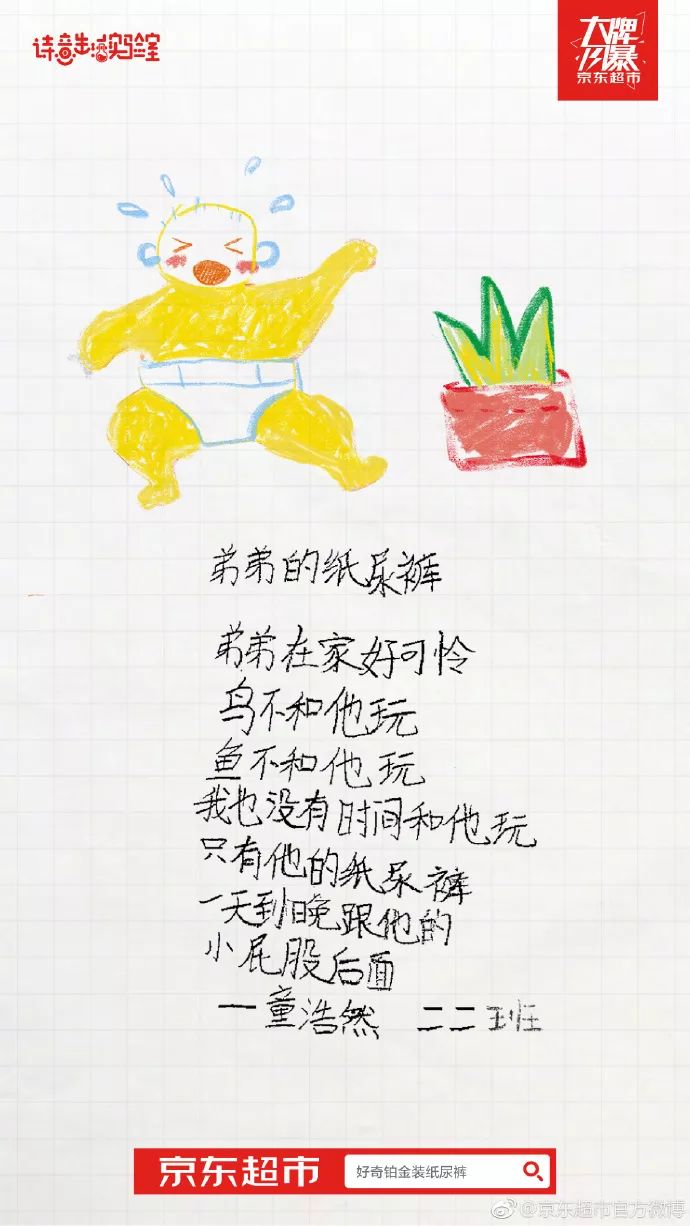 诗意生活实验室
大牌风暴
京东超市
弟弟的纸尿裤
弟弟在家好可怜
鸟不和他玩
鱼不和他玩
我也没有时间和他玩
只有他的纸尿裤
一天到晚跟他的
小屁股后面
一童浩然 二二班
京东超市 好奇铂金装纸尿裤
@京东超市官方微博